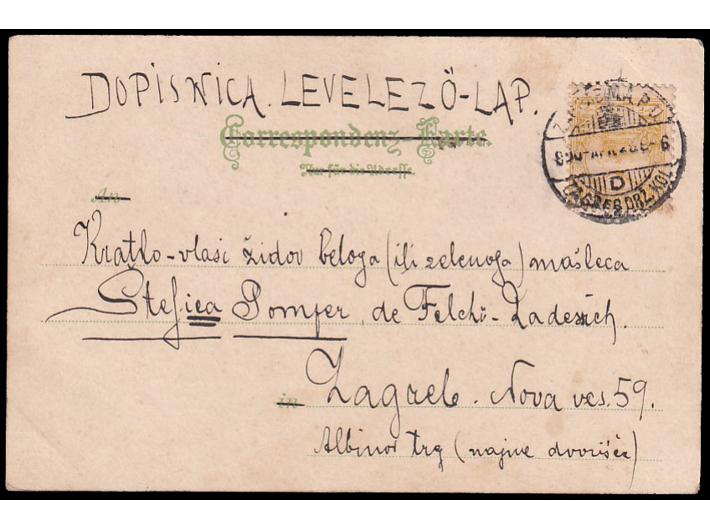 DOPISNICA. LEVELEZŐ-LAP.
Correspondenz-Karte.
Nur für die Adresse.
An
Kratko-vlasi židov beloga (ili zelenoga) mašleca
Štefica Pomper, de Felchi-
in Zagreb. Nova ves. 59.
Albinov trg (najne dvorišće)
ZAGREB
D